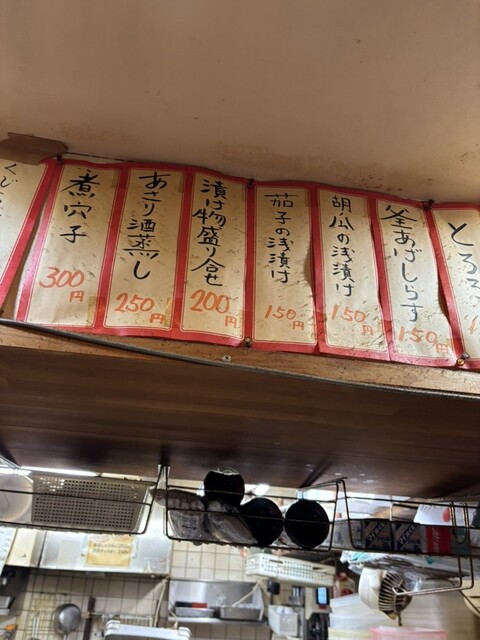 とろろ
釜あげしらす
150円
胡瓜の浅漬け
150円
茄子の浅漬け
150円
漬け物盛り合せ
200円
あさり酒蒸し
250円
煮穴子
300円
くじ